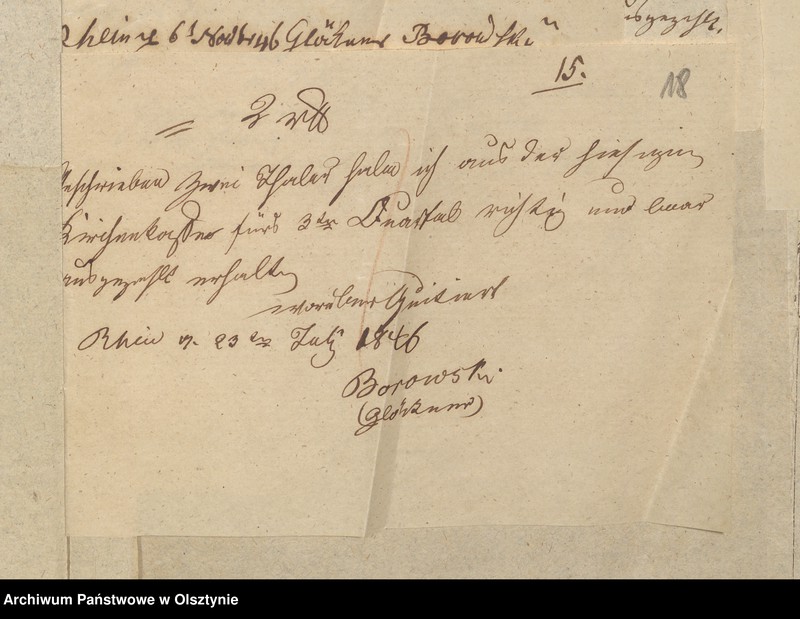 ausgezahlt.
Rhein d 6t Novbr 46 Glöckner Borowski
15.
18
2 rtl
Geschrieben zwei Thaler habe ich aus der hiesigen
Kirchenkasse fürs 3te Quartal richtig und baar
ausgezahlt erhalten
worüber Quitiert
Rhein d. 23ten July 1846
Borowski.
(Glöckner)
Archiwum Państwowe w Olsztynie